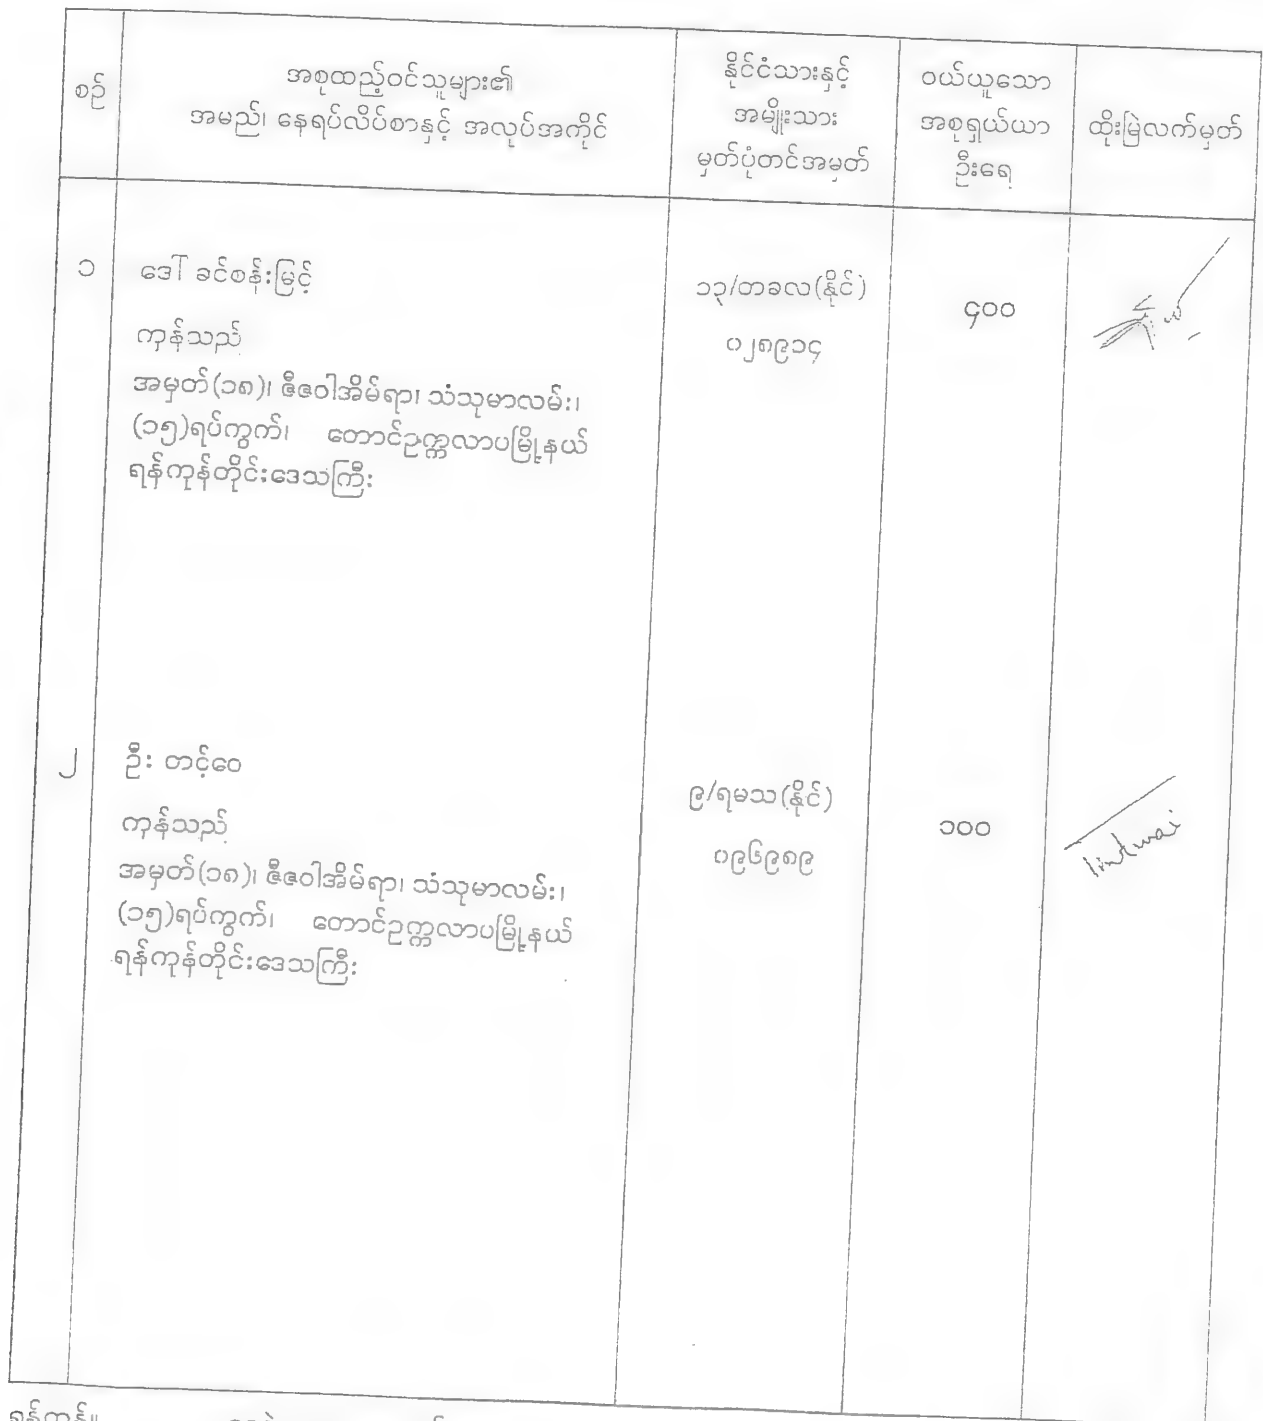 စဉ်
အစုထည့်ဝင်သူများ၏
အမည်၊ နေရပ်လိပ်စာနှင့် အလုပ်အကိုင်
နိုင်ငံသားနှင့်
အမျိုးသား
မှတ်ပုံတင်အမှတ်
ဝယ်ယူသော
အစုရှယ်ယာ
ဦးရေ
ထိုးမြဲလက်မှတ်
၁
ဒေါ် ခင်စန်းမြင့်
ကုန်သည်
အမှတ်(၁၈)၊ ဇီဇဝါအိမ်ရာ၊ သံသုမာလမ်း၊
(၁၅)ရပ်ကွက်၊ တောင်ဥက္ကလာပမြို့နယ်
ရန်ကုန်တိုင်းဒေသကြီး
၁၃/တခလ(နိုင်)
၀၂၈၉၁၄
၄၀၀
၂
ဦး တင့်ဝေ
ကုန်သည်
အမှတ်(၁၈)၊ ဇီဇဝါအိမ်ရာ၊ သံသုမာလမ်း၊
(၁၅)ရပ်ကွက်၊ တောင်ဥက္ကလာပမြို့နယ်
ရန်ကုန်တိုင်းဒေသကြီး
၉/ရမသ(နိုင်)
၀၉၆၉၈၉
၁၀၀
Tintwai
ရန်ကုန်။